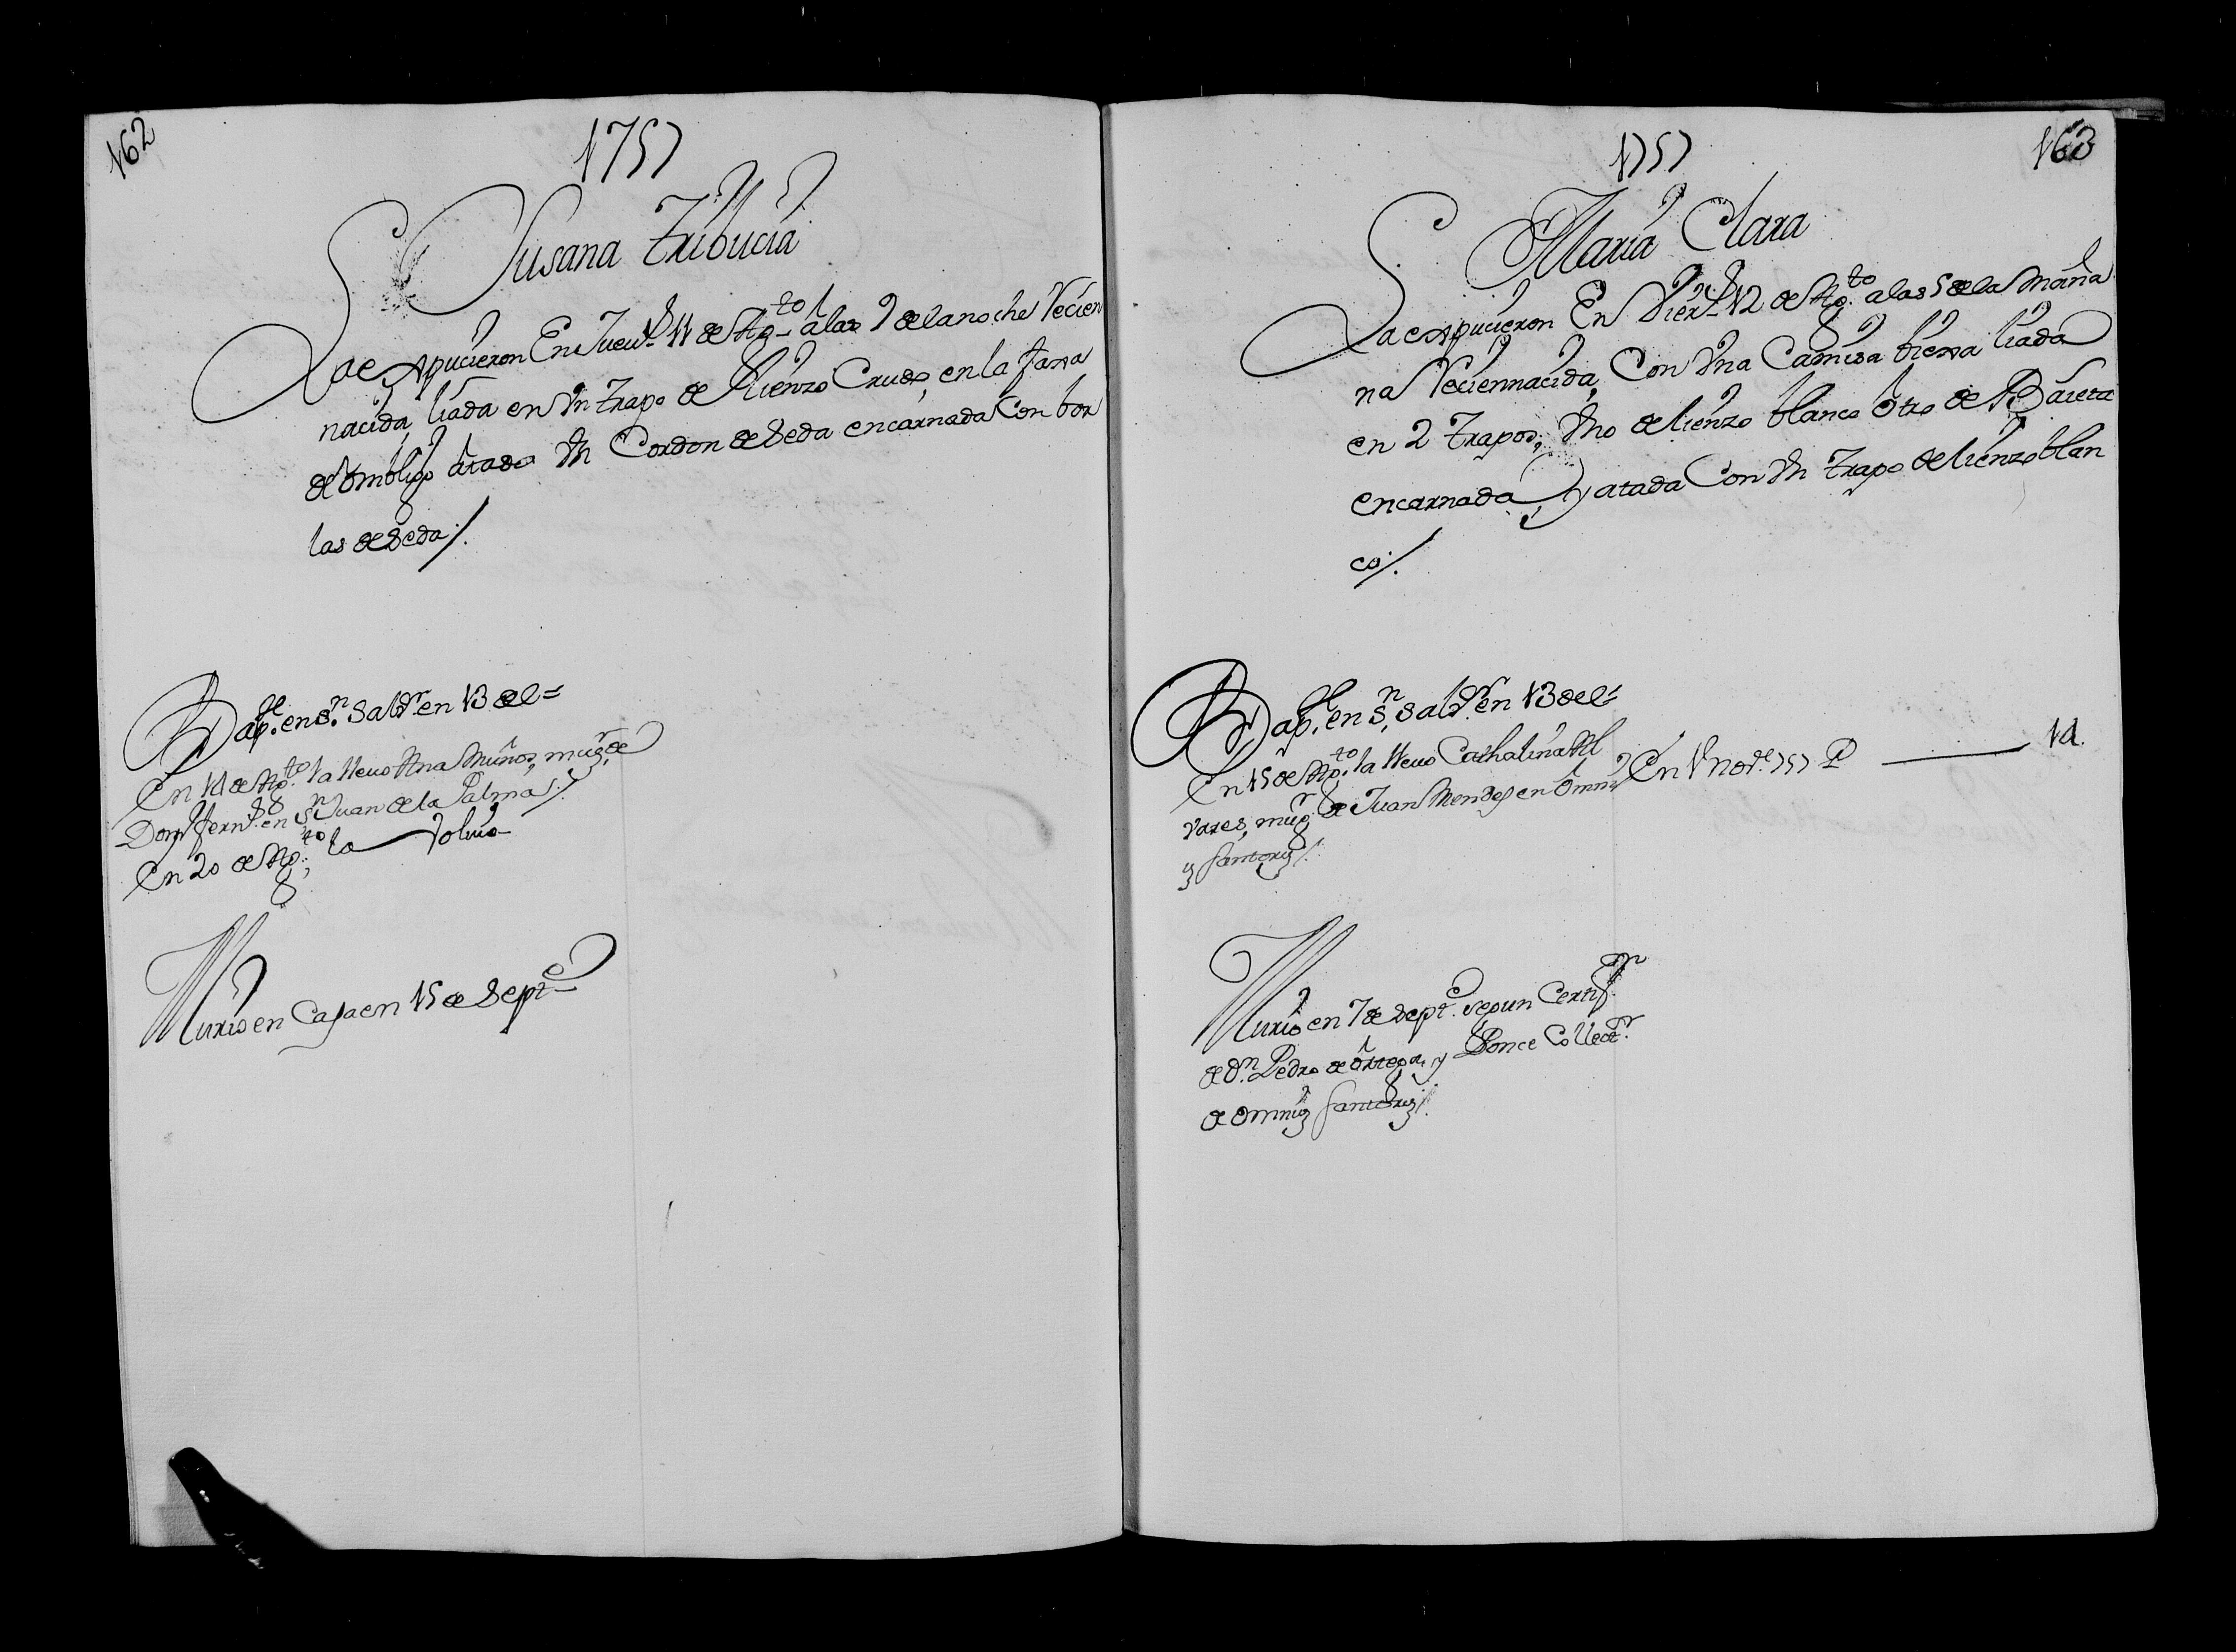 162
1757
Susana Tribucia
La expucieron En Juev.s 11 de Ag.to â las 9 de la noche recien
nacida, liada en Vn trapo de Lienzo Crudo, en la faxa
de ombligo atado Vn Cordon de Seda encarnada Con bor
las de Seda /.
Bap.e en S.n Salv.r en 13 del=
En 14 de Ag.to la llevo Ana Muños, mug.r de
Dom.o Fern.s en S.n Juan de la Palma /.
En 20 de Ag.to, la volvio
Murio en Casa en 15 de Sept.e
163
1757
Maria Clara
La expucieron En Vier.s 12 de Ag.to a las 5 de la Maña
na Reciennacida, Con Vna Camisa viexa liada
en 2 trapos, Vno de lienzo blanco Otro de Baieta
encarnada, y atada Con Vn trapo de lienzo blan
co /.
Bap.e en S.n Salv.r en 13 del=
En 15 de Ag.to la llevo Cathalina Al
vares, mug.r de Juan Mendes en Omniũ
Santorũ /.
En 1º nov.e 757 P — 14.
Murio en 7 de Sept.e segun Certif.on
de D.n Pedro de Ortega, y Ponce Collect.r
de Omniũ Santorũ /.